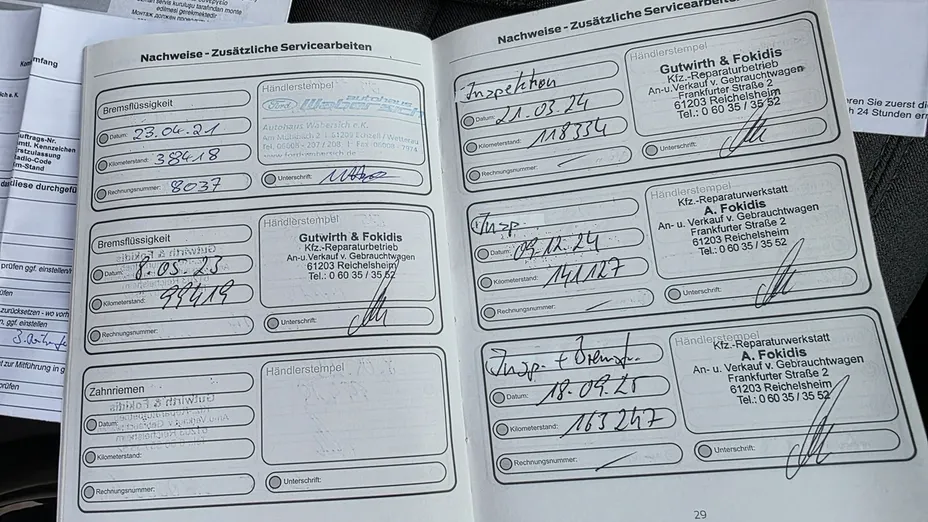 Nachweise - Zusätzliche Servicearbeiten
Bremsflüssigkeit
Datum: 23.04.21
Kilometerstand: 38418
Rechnungsnummer: 8037
Händlerstempel
Ford
autohaus
Autohaus Wabersich e.K.
Unterschrift:
Bremsflüssigkeit
Datum: 8.05.23
Kilometerstand: 99419
Rechnungsnummer:
Händlerstempel
Gutwirth & Fokidis
Kfz.-Reparaturbetrieb
An-u.Verkauf v. Gebrauchtwagen
61203 Reichelsheim
Tel.: 0 60 35 / 35 52
Unterschrift:
Zahnriemen
Datum:
Kilometerstand:
Rechnungsnummer:
Händlerstempel
Unterschrift:
Nachweise - Zusätzliche Servicearbeiten
Inspektion
Datum: 21.03.24
Kilometerstand: 118334
Rechnungsnummer:
Händlerstempel
Gutwirth & Fokidis
Kfz.-Reparaturbetrieb
An-u.Verkauf v. Gebrauchtwagen
Frankfurter Straße 2
61203 Reichelsheim
Tel.: 0 60 35 / 35 52
Unterschrift:
Insp.
Datum: 09.12.24
Kilometerstand: 141127
Rechnungsnummer:
Händlerstempel
Kfz.-Reparaturwerkstatt
A. Fokidis
An- u. Verkauf v. Gebrauchtwagen
Frankfurter Straße 2
61203 Reichelsheim
Tel.: 0 60 35 / 35 52
Unterschrift:
Insp. +
Datum: 18.09.25
Kilometerstand: 163247
Rechnungsnummer:
Händlerstempel
Kfz.-Reparaturwerkstatt
A. Fokidis
An- u. Verkauf v. Gebrauchtwagen
Frankfurter Straße 2
61203 Reichelsheim
Tel.: 0 60 35 / 35 52
Unterschrift:
29